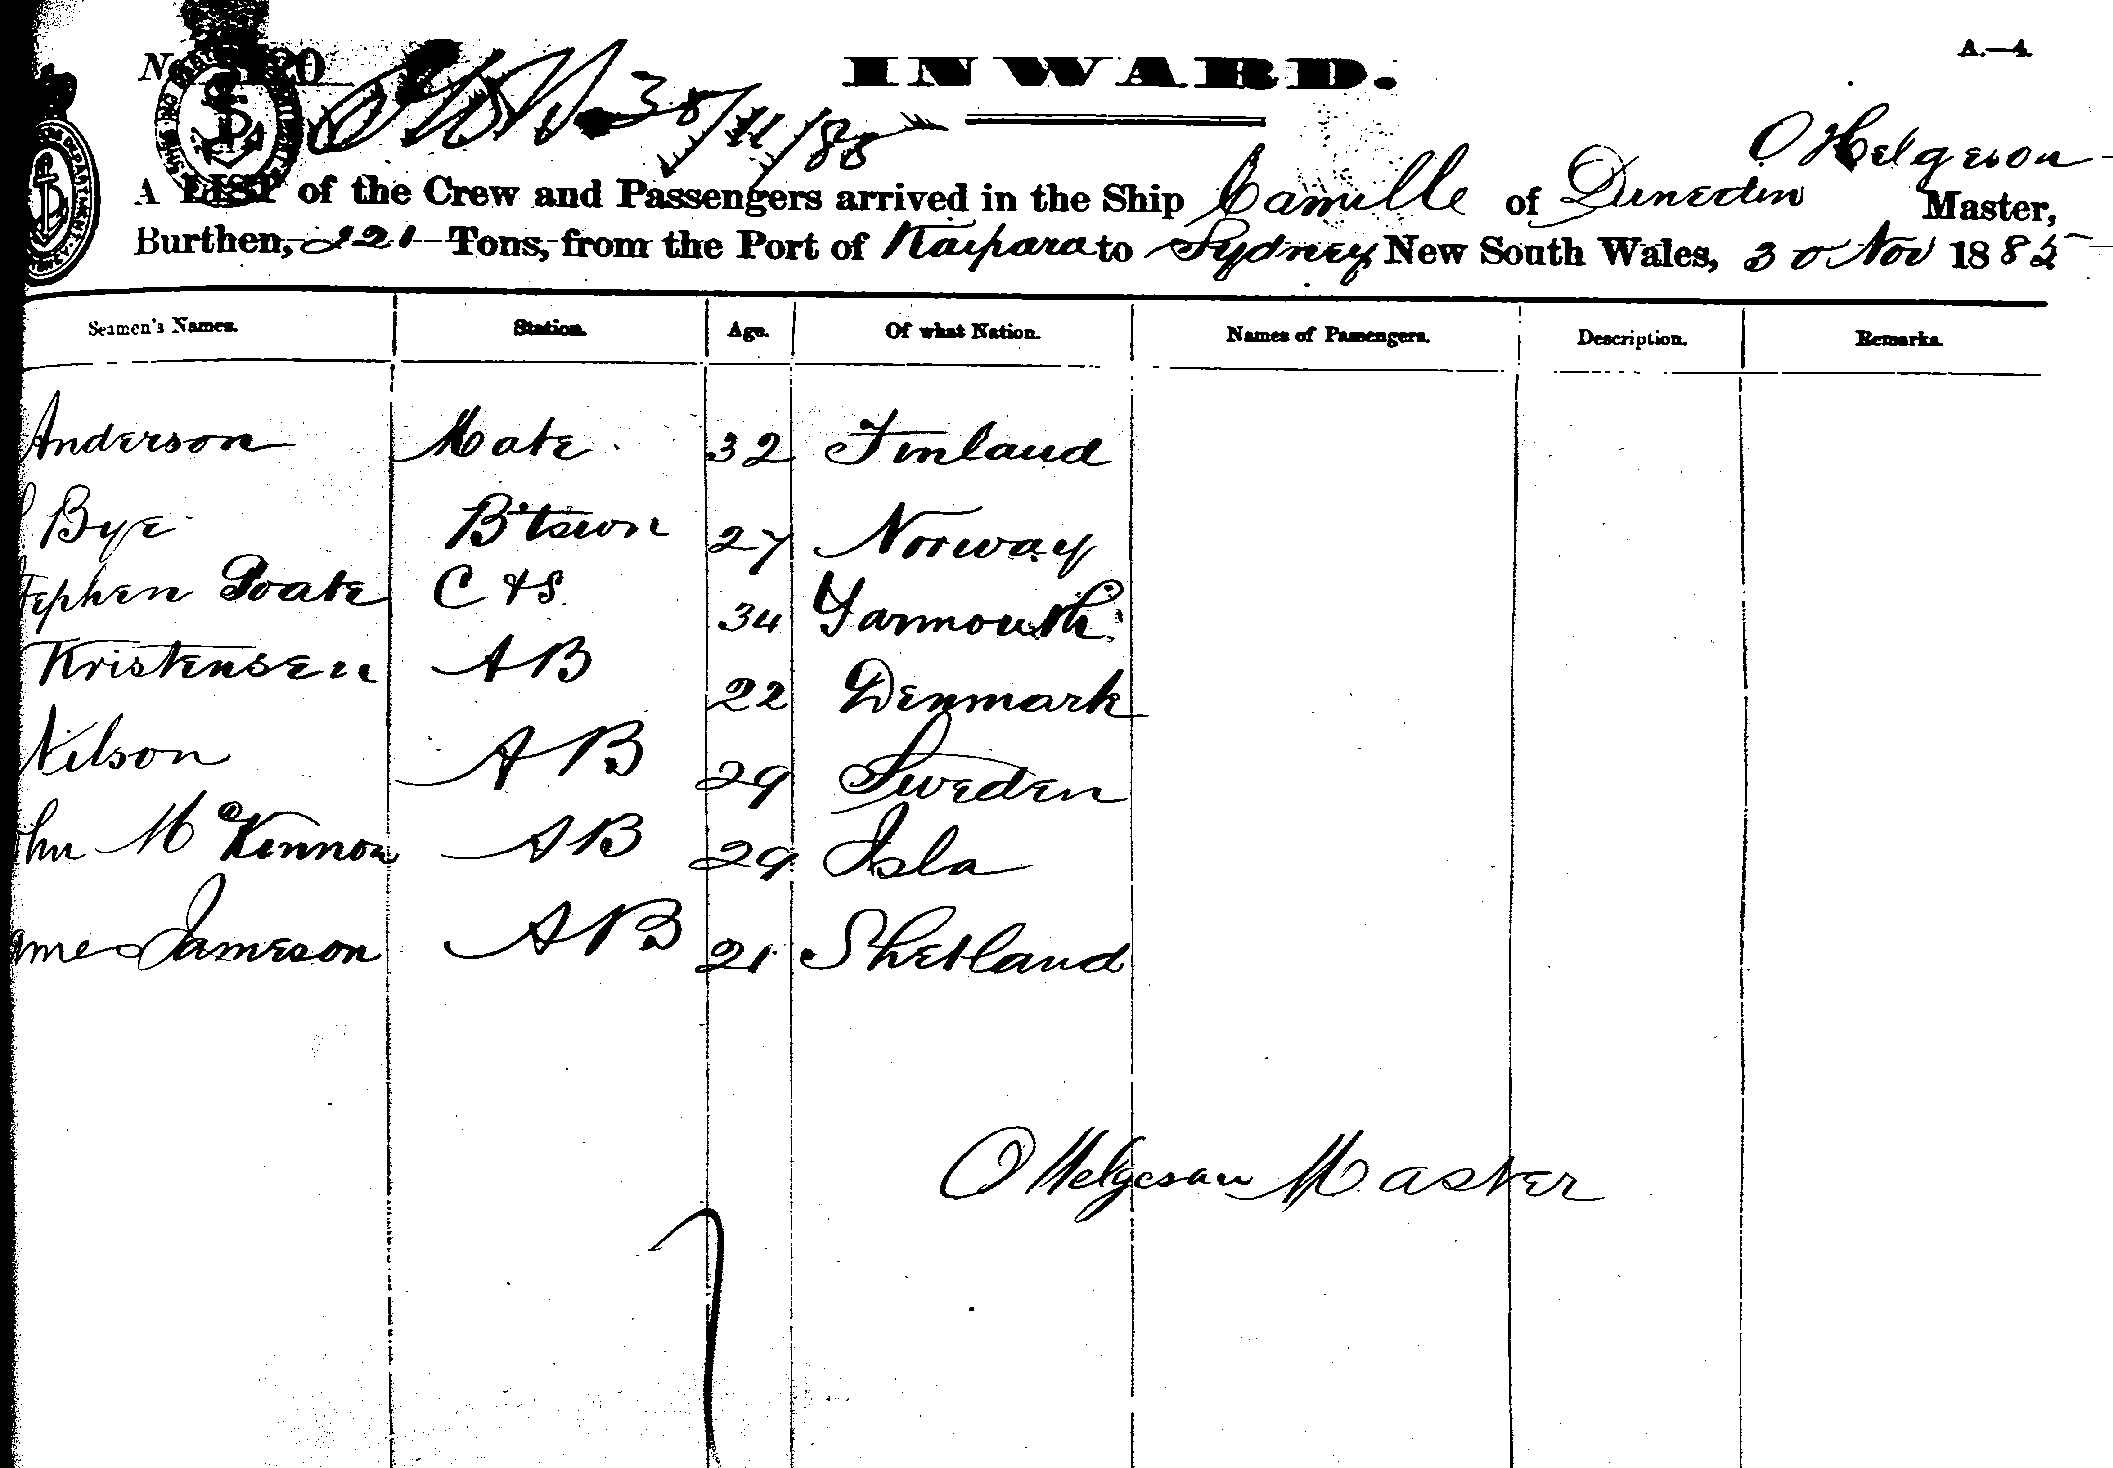 INWARD.
A.—4.
30/11/85
O Helgeson
A LIST of the Crew and Passengers arrived in the Ship Camille of Dunedin Master,
Burthen, 221 Tons, from the Port of Kaipara to Sydney New South Wales, 30 Nov 1885
Seamen's Names. Station. Age. Of what Nation. Names of Passengers. Description. Remarks.
Anderson Mate 32 Finland
Bye B'tswn 27 Norway
tephen Poate C & S 34 Yarmouth
Kristensen AB 22 Denmark
Nilson AB 29 Sweden
hn McKennon AB 29 Isla
ames Jameson AB 21 Shetland
O Helgesan Master